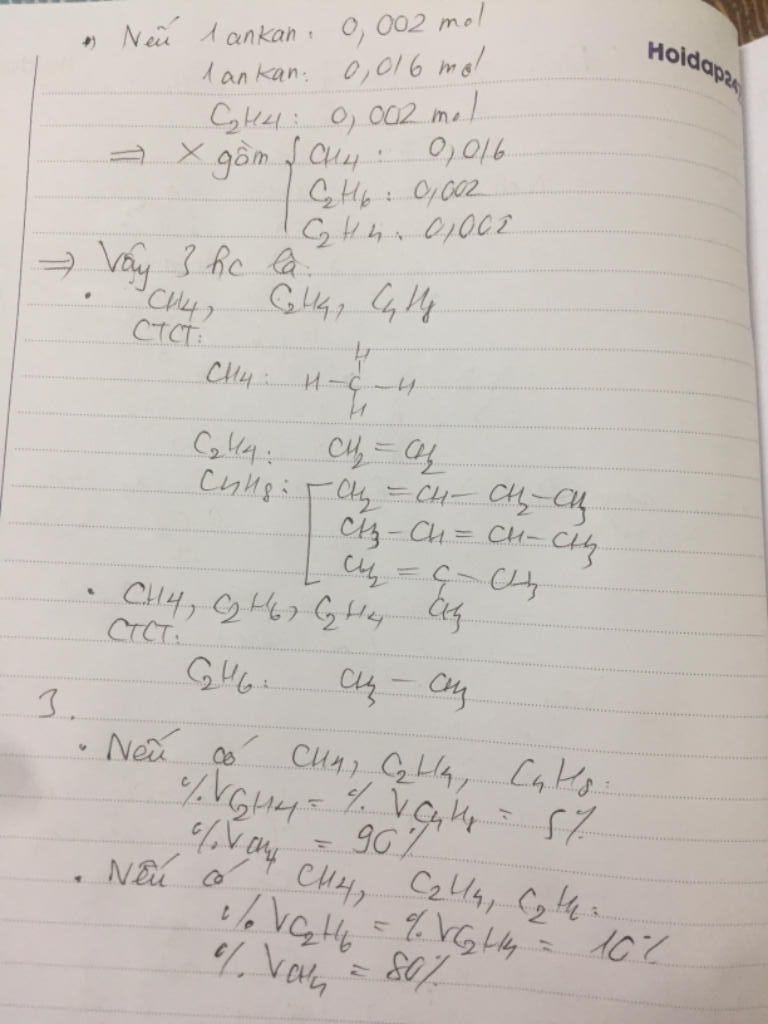 •) Nếu 1 ankan: 0,002 mol
Hoidap247
1 ankan: 0,016 mol
C2H4: 0,002 mol
=> X gồm { CH4: 0,016
C2H6: 0,002
C2H4: 0,002
=> Vậy 3 hc là:
• CH4, C2H4, C4H8
CTCT:
H
CH4: H - C - H
H
C2H4: CH2 = CH2
C4H8: [ CH2 = CH - CH2 - CH3
CH3 - CH = CH - CH3
CH2 = C - CH3
CH3
• CH4, C2H6, C2H4
CTCT:
C2H6: CH3 - CH3
3.
• Nếu có CH4, C2H4, C4H8:
%VC2H4 = %VC4H8 = 5%
%VCH4 = 90%
• Nếu có CH4, C2H4, C2H6:
%VC2H6 = %VC2H4 = 10%
%VCH4 = 80%